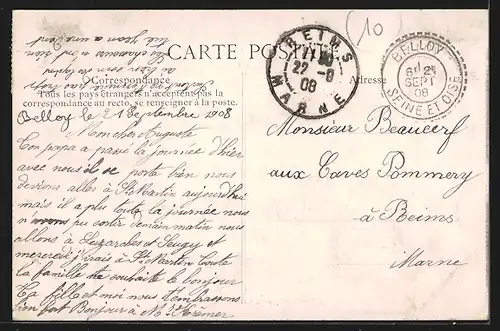 (10
CARTE POSTALE
Correspondance
Adresse
Tous les pays étrangers n'acceptant pas la
correspondance au recto, se renseigner à la poste.
REIMS
22-9
08
MARNE
BELLOY
SEPT
08
SEINE ET OISE
Belloy le 21 Septembre 1908
Mon cher Auguste
Ton papa a passé la journée d'hier
avec nous il se porte bien nous
devions aller à St Martin aujourd'hui
mais il a plu toute la journée nous
n'avons pu sortir demain matin nous
allons à et
mercredi j'irais à St Martin toute
la famille te souhaite le bonjour
Ta fille et moi nous t'embrassons
bien fort Bonjour à Mr
Monsieur Beaucerf
aux Caves Pommery
à Reims
Marne